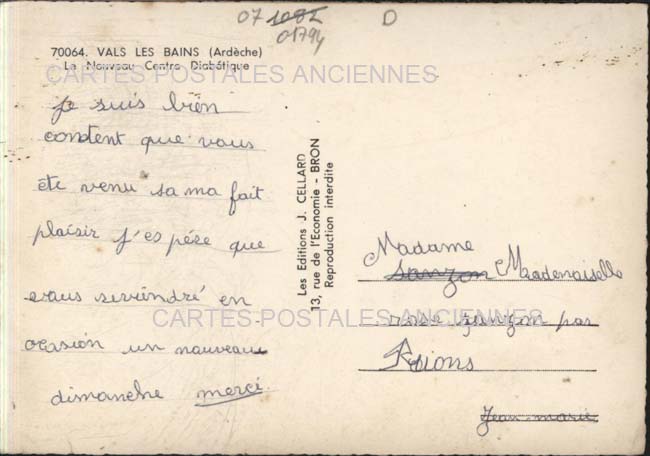 07 1082
01794
D
70064. VALS LES BAINS (Ardèche)
Le Nouveau Centre Diabétique
CARTES POSTALES ANCIENNES
je suis bien
contient que vous
éte venu sa ma fait
plaisir j'es pére que
vous reviendré en
ocasion un nouveau
dimanche merci
Les Editions J. CELLARD
13, rue de l'Economie - BRON
Reproduction interdite
Madame
sanzon Maademoiselle
sanzon par
CARTES POSTALES ANCIENNES
Jean-marie